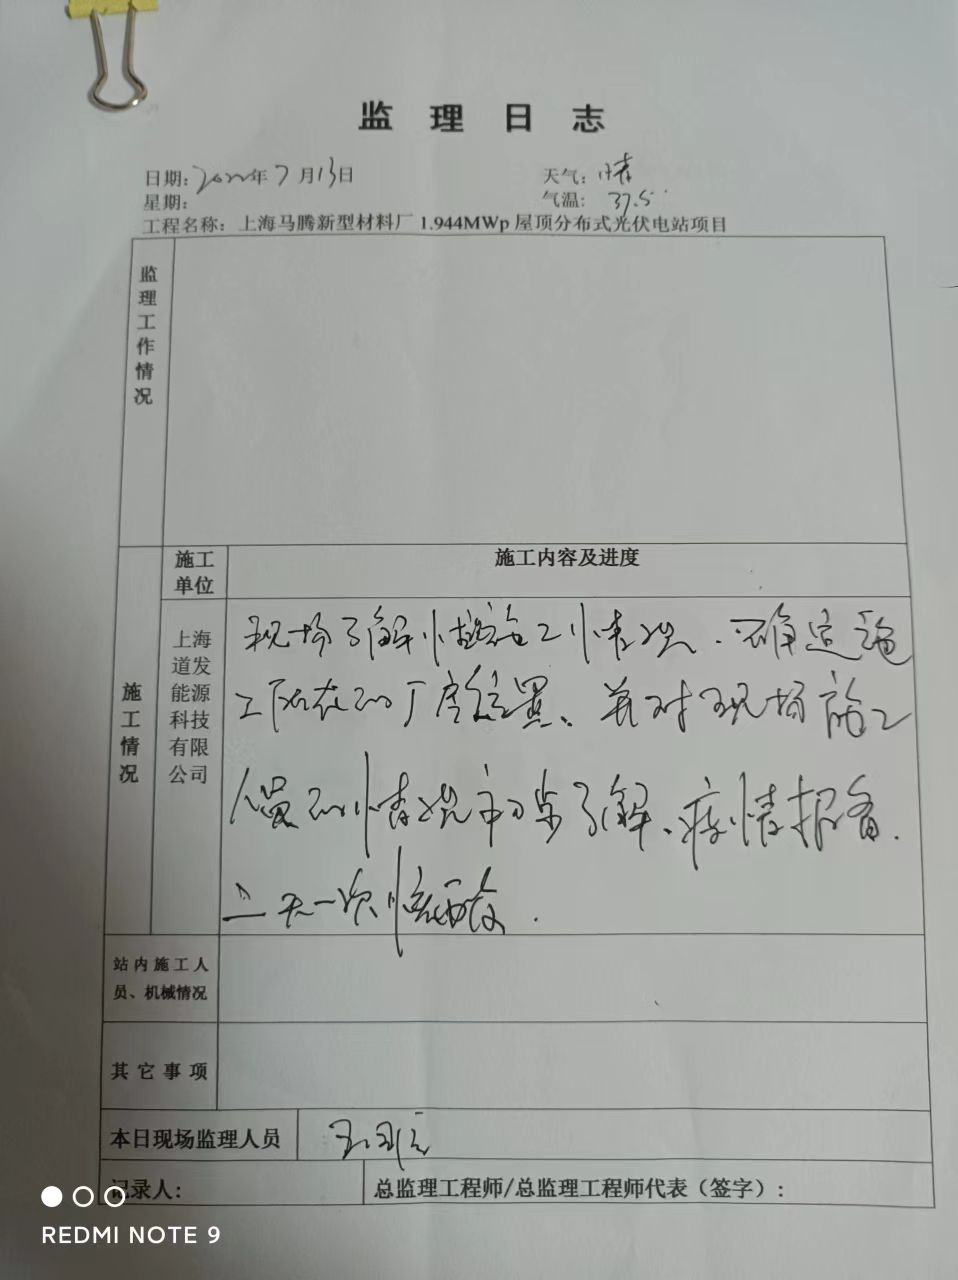 监理日志
日期:2022年7月13日 天气:晴
星期: 气温:37.5
工程名称:上海马腾新型材料厂1.944MWp屋顶分布式光伏电站项目
监理工作情况
施工单位 施工内容及进度
施工情况
上海道发能源科技有限公司
现场了解施工情况.确定施
工所在的厂房位置、并对现场施工
人员的情况初步了解、疫情报备.
一次核酸.
站内施工人员、机械情况
其它事项
本日现场监理人员
记录人: 总监理工程师/总监理工程师代表(签字):
REDMI NOTE 9